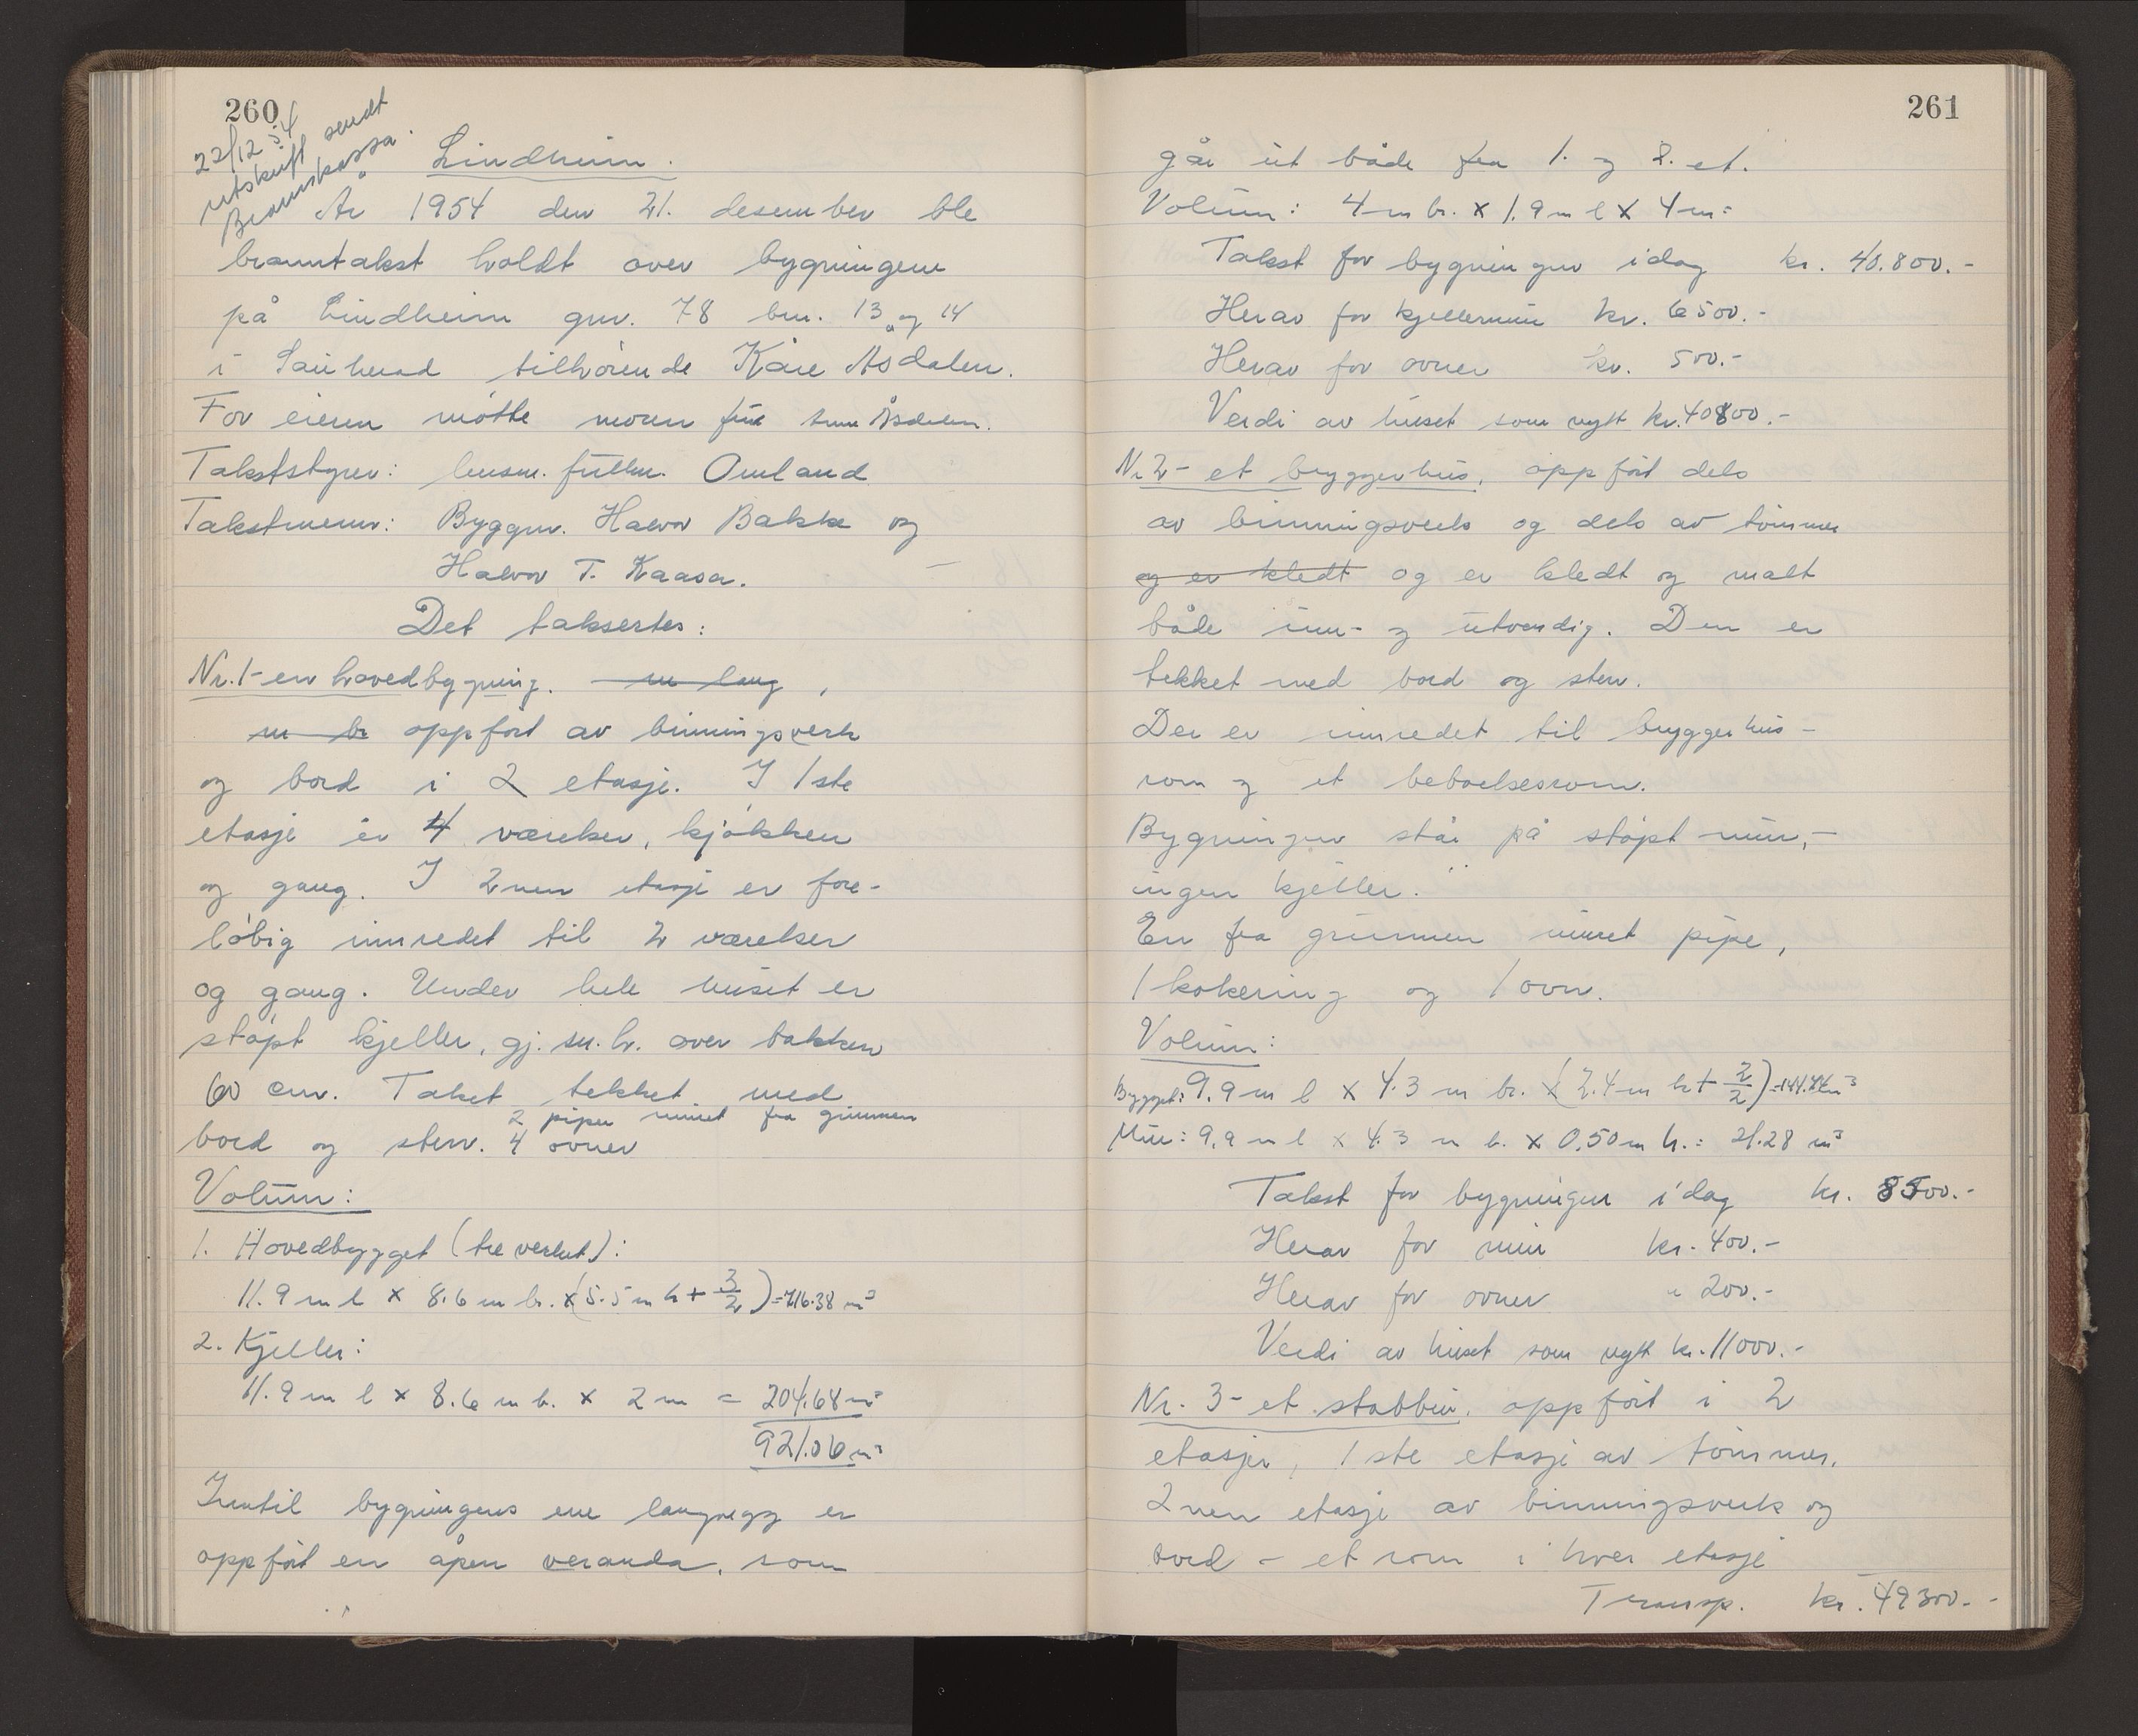 260
22/12 54
utskrift sendt
Brannkassa.
Lindheim.
År 1954 den 21. desember ble
branntakst holdt over bygningene
på Lindheim gnr. 78 bnr. 13 og 14
i Sauherad tilhørende Kåre Åsdalen.
For eieren møtte moren fru Anne Åsdalen.
Takststyrer: lensm. fullm. Omland
Takstmenn: Byggm. Halvor Bakke og
Halvor T. Kaasa.
Det taksertes:
Nr. 1 - en hovedbygning. m lang,
m br oppført av binningsverk
og bord i 2 etasje. I 1ste
etasje er 4 værelser, kjøkken
og gang. I 2nen etasje er fore-
løbig innredet til 2 værelser
og gang. Under hele huset er
støpt kjeller, gj. sn. h. over bakken
60 cm. Taket tekket med
2 piper muret fra grunnen
bord og stein. 4 ovner
Volum:
1. Hovedbygget (treverket):
11.9 m l x 8.6 m br. x (5.5 m h + 3/2) = 716.38 m³
2. Kjeller:
11.9 m l x 8.6 m b. x 2 m = 204.68 m³
921.06 m³
Inntil bygningens ene langvegg er
oppført en åpen veranda, som
261
går ut både fra 1. og 2. et.
Volum: 4 m br. x 1.9 m l x 4 m =
Takst for bygningen idag kr. 40.800.-
Herav for kjellermur kr. 6500.-
Herav for ovner kr. 500.-
Verdi av huset som nytt kr. 40800.-
Nr 2 - et bryggerhus, oppført dels
av binningsverk og dels av tømmer
og er kledt og er kledt og malt
både inn- og utvendig. Den er
tekket med bord og stein.
Der er innredet til bryggerhus-
rom og et beboelsesrom.
Bygningen står på støpt mur, -
ingen kjeller.
En fra grunnen muret pipe,
1 kokering og 1 ovn.
Volum:
Bygget: 9.9 m l x 4.3 m br. x (2.4 m h + 2/2) = 144.74 m³
Mur: 9.9 m l x 4.3 m b. x 0.50 m h.: 21.28 m³
Takst for bygningen idag kr. 8500.-
Herav for mur kr. 400.-
Herav for ovner " 200.-
Verdi av huset som nytt kr. 11000.-
Nr. 3 - et stabbur, oppført i 2
etasjer, 1ste etasje av tømmer,
2nen etasje av binningsverk og
bord - et rom i hver etasje
Transp. kr. 49300.-